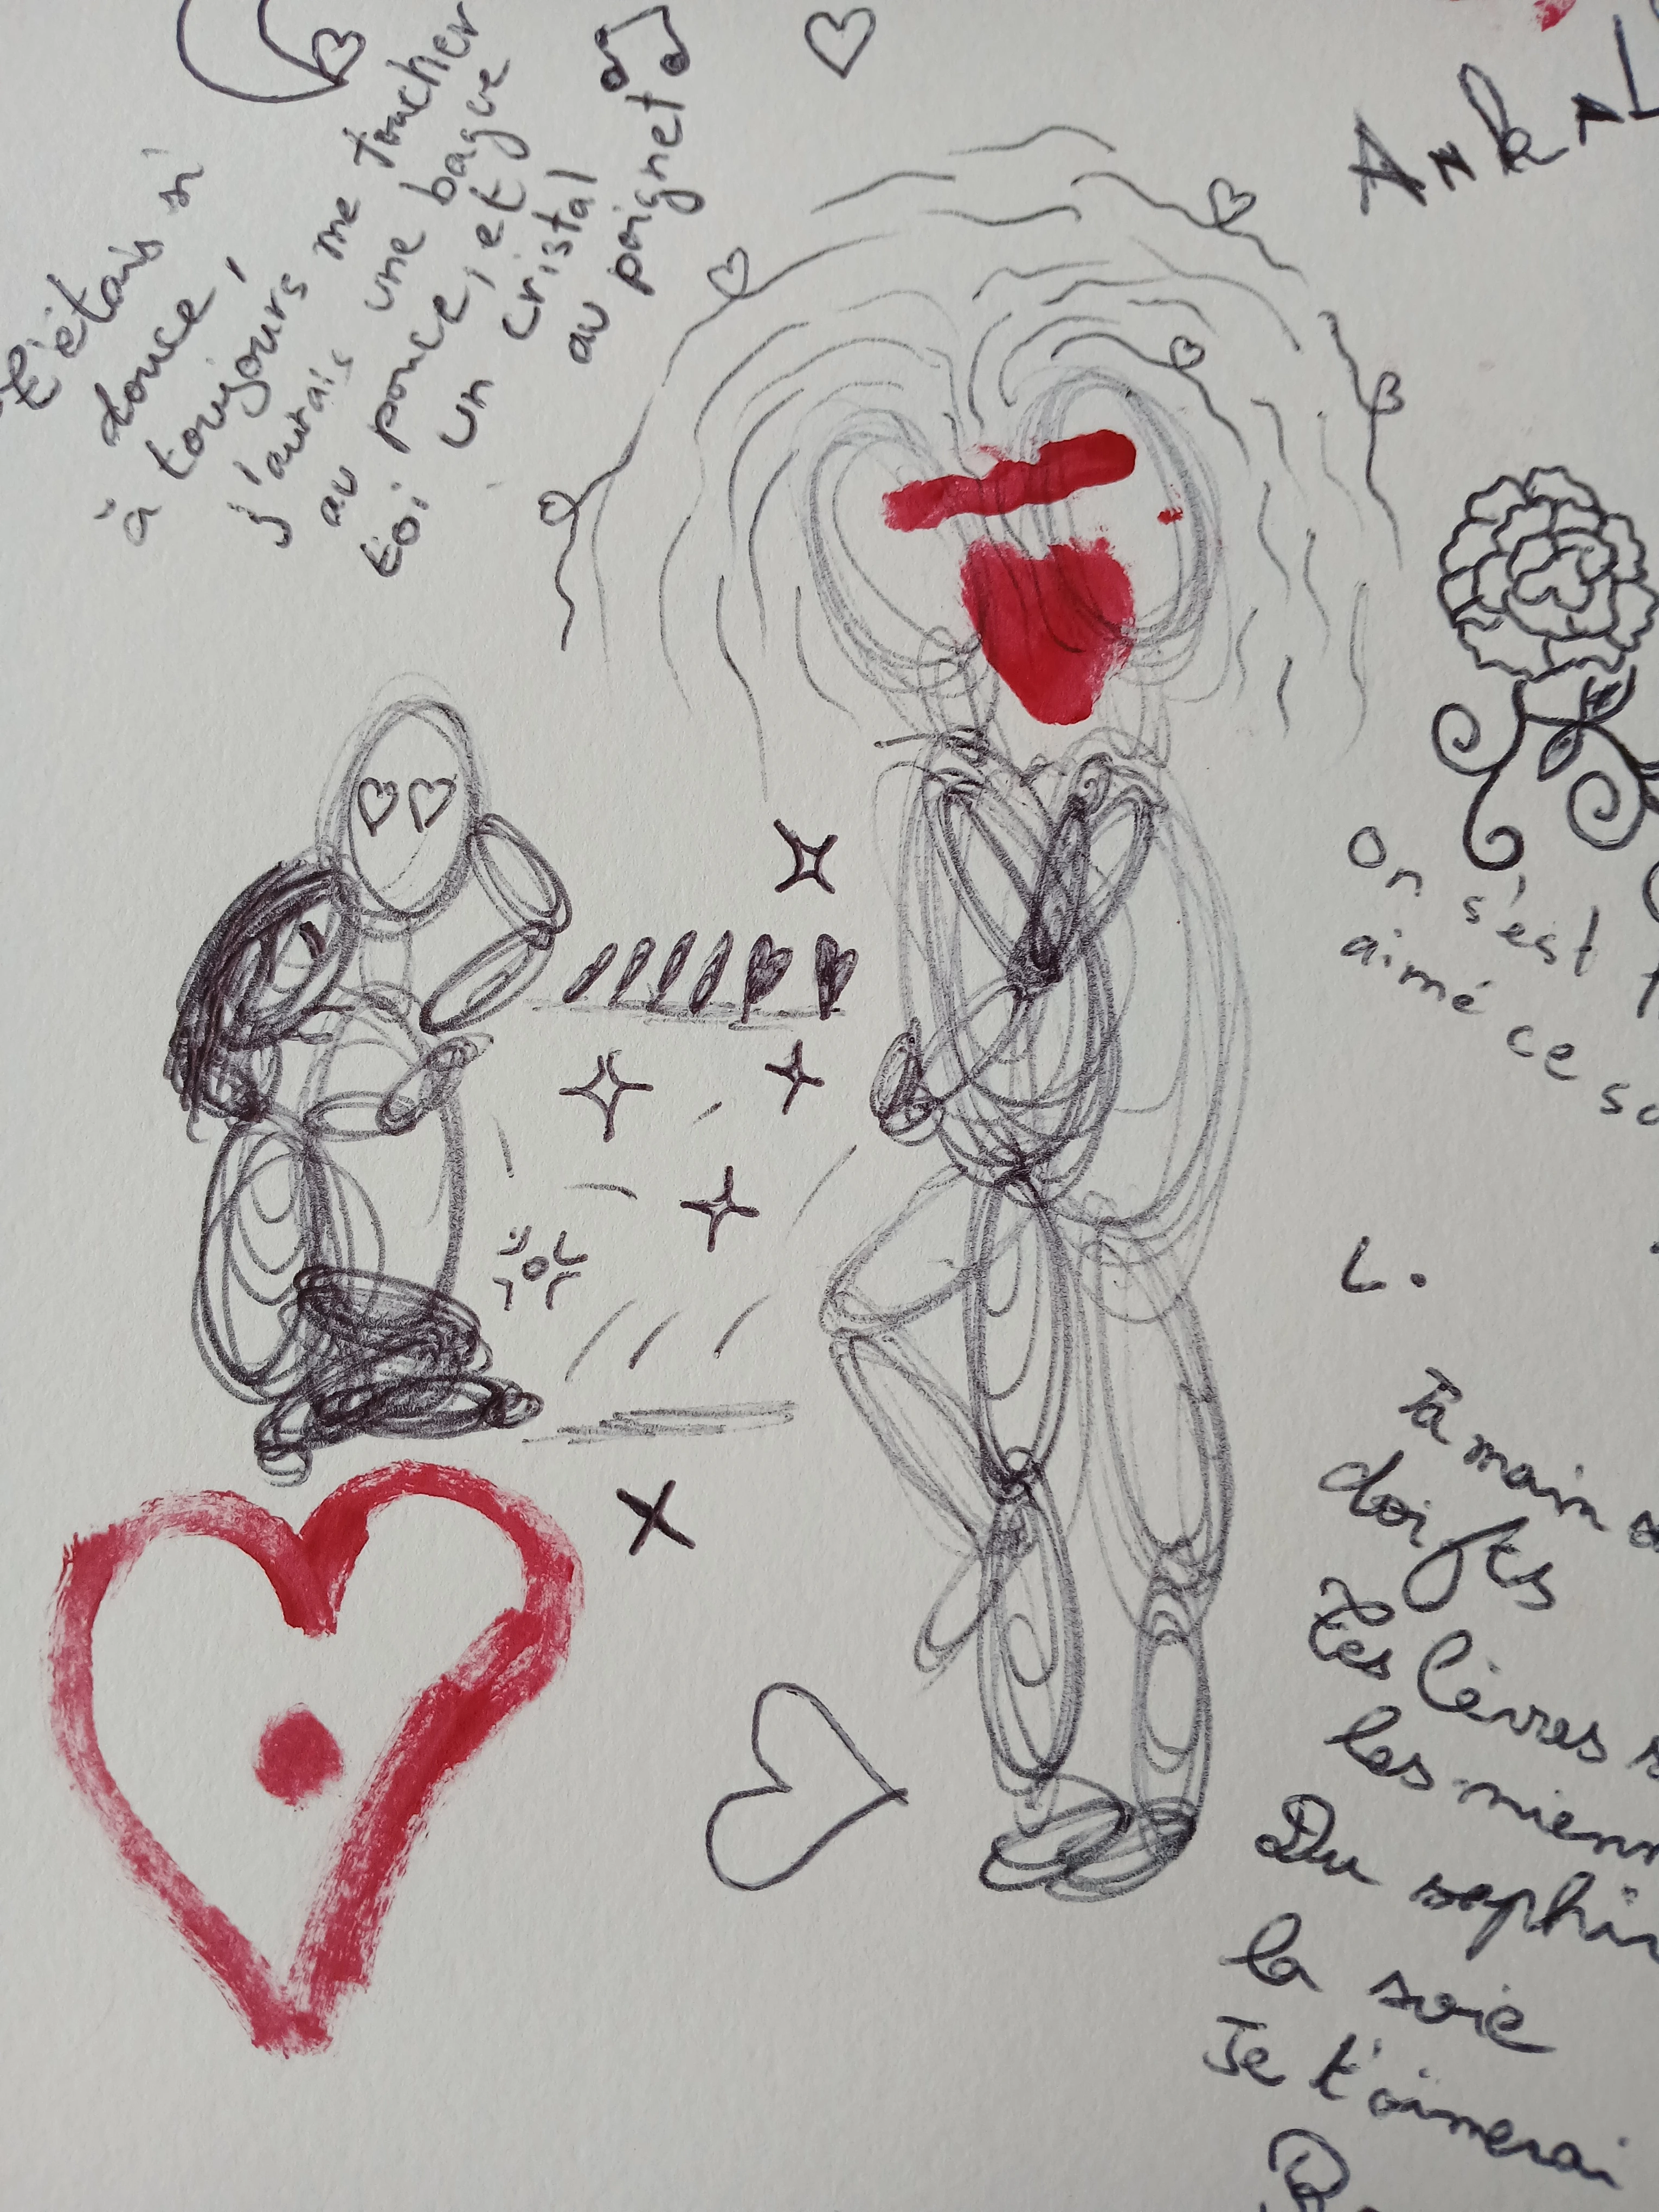 t'étais si
douce,
à toujours me toucher
j'aurais une bague
au pouce, et
toi un cristal
au poignet
On s'est
aimé ce
L.
Ta main
doigts
Tes lèvres
les
Du
la soie
Je t'aimerai